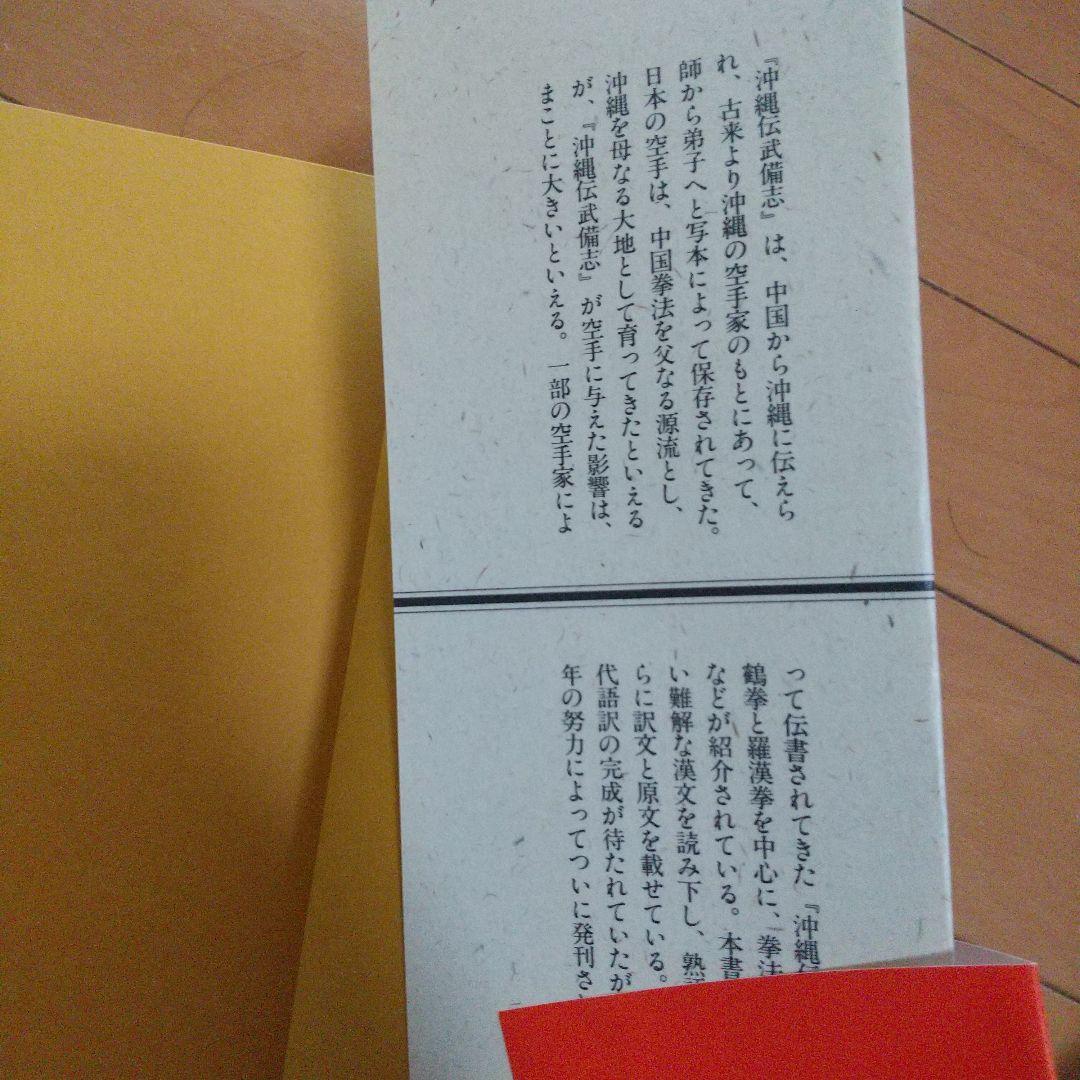 『沖縄伝武備志』は、中国から沖縄に伝えら
れ、古来より沖縄の空手家のもとにあって、
師から弟子へと写本によって保存されてきた。
日本の空手は、中国拳法を父なる源流とし、
沖縄を母なる大地として育ってきたといえる
が、『沖縄伝武備志』が空手に与えた影響は、
まことに大きいといえる。一部の空手家によ
って伝書されてきた『沖縄
鶴拳と羅漢拳を中心に、拳法
などが紹介されている。本書
い難解な漢文を読み下し、熟
らに訳文と原文を載せている。
代語訳の完成が待たれていたが
年の努力によってついに発刊さ